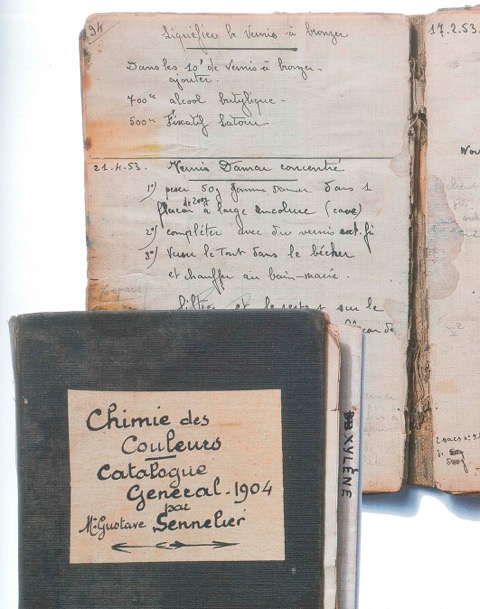 94
Liquéfier le vernis à bronzer
Dans les 10l de vernis à bronzer -
ajouter.
700cc alcool butylique -
500cc Fixatif Latour
21.4.53. Vernis Damar concentré
1°) peser 50g gomme Damar dans 1
flacon de 200g à large encolure (cave)
2°) compléter avec du vernis ext. fi
3°) Verser le Tout dans le bécher
et chauffer au bain-marie.
filtrer et le reste sur le
17.2.53.
Chimie des
Couleurs
Catalogue
General - 1904
par
Mr Gustave Sennelier
XYLÈNE